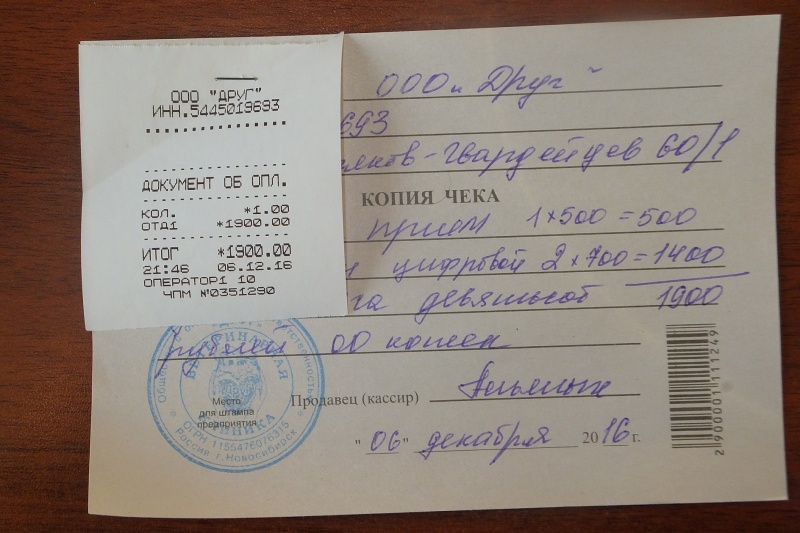 ООО "ДРУГ"
ИНН.5445019693
ДОКУМЕНТ ОБ ОПЛ.
КОЛ. *1.00
ОТД1 *1900.00
ИТОГ *1900.00
21:46 06.12.16
ОПЕРАТОР1 10
ЧПМ №0351290
ООО "Друг"
693
Гвардейцев 60/1
КОПИЯ ЧЕКА
прием 1×500=500
цифровой 2×700=1400
девятьсот 1900
рублей 00 копеек
Продавец (кассир)
"06" декабря 2016 г.
Место
для штампа
предприятия
ВЕТЕРИНАРНАЯ
КЛИНИКА
ОГРН 1155476076315
Россия г.Новосибирск
2900001111249